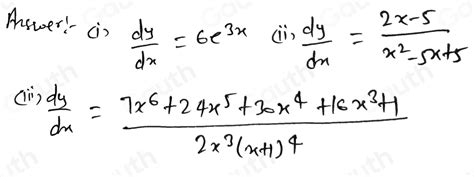 Answer:- (i) dy/dx = 6e^3x (ii) dy/dx = (2x-5)/(x^2-5x+5)
(iii) dy/dx = (7x^6+24x^5+30x^4+16x^3+1)/(2x^3(x+1)^4)